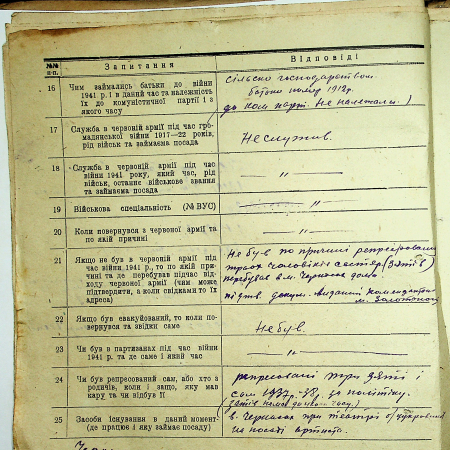 №№ п-п. Запитання Відповіді
16 Чим займались батьки до війни
1941 р. і в даний час та належність
їх до комуністичної партії і з
якого часу
сільско господарством.
батьки помер 1912р.
до ком парт. Не належали.
17 Служба в червоній армії під час гро-
мадянської війни 1917—22 років,
рід військ та займаєма посада
Не служив.
18 Служба в червоній армії під час
війни 1941 року, який час, рід
військ, останнє військове звання
та займаєма посада
— „ —
19 Військова спеціальність (№ ВУС)
— „ —
20 Коли повернувся з червоної армії та
по якій причині
— „ —
21 Якщо не був в червоній армії під
час війни 1941 р., то по якій при-
чині та де перебував підчас від-
ходу червоної армії (чим може
підтвердити, а коли свідками то їх
адреса)
Не був по причині репресована
трьох чоловіків сестер (Зятів)
перебував в м. Черкасах
підтв. докум. виданий
м. Золотоноші
22 Якщо був евакуйований, то коли по-
вернувся та звідки саме
Не був.
23 Чи був в партизанах під час війни
1941 р. та де саме і який час
— „ —
24 Чи був репресований сам, або хто з
родичів, коли і защо, яку мав
кару та чи відбув її
репресовані три зяті і
сам 1937р. за політику.
25 Засоби існування в даний момент
(де працює і яку займає посаду)
в Черкасах при театрі
на посаді артиста.